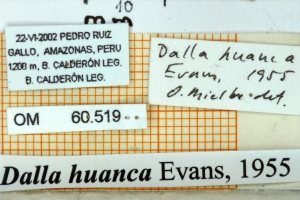 10
mm
22-VI-2002 PEDRO RUIZ
GALLO, AMAZONAS, PERU
1200 m, B. CALDERÓN LEG.
B. CALDERÓN LEG.
Dalla huanca
Evans, 1955
O. Mielke det.
OM 60.519
Dalla huanca Evans, 1955